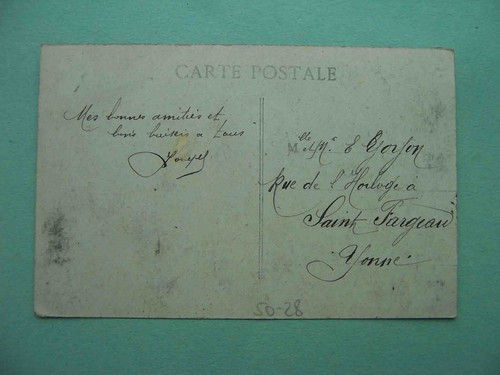 CARTE POSTALE
Mes bonnes amitiés et
bons baisers a tous
M
E
Rue de l'Horloge à
Saint Fargeau
Yonne
50-28